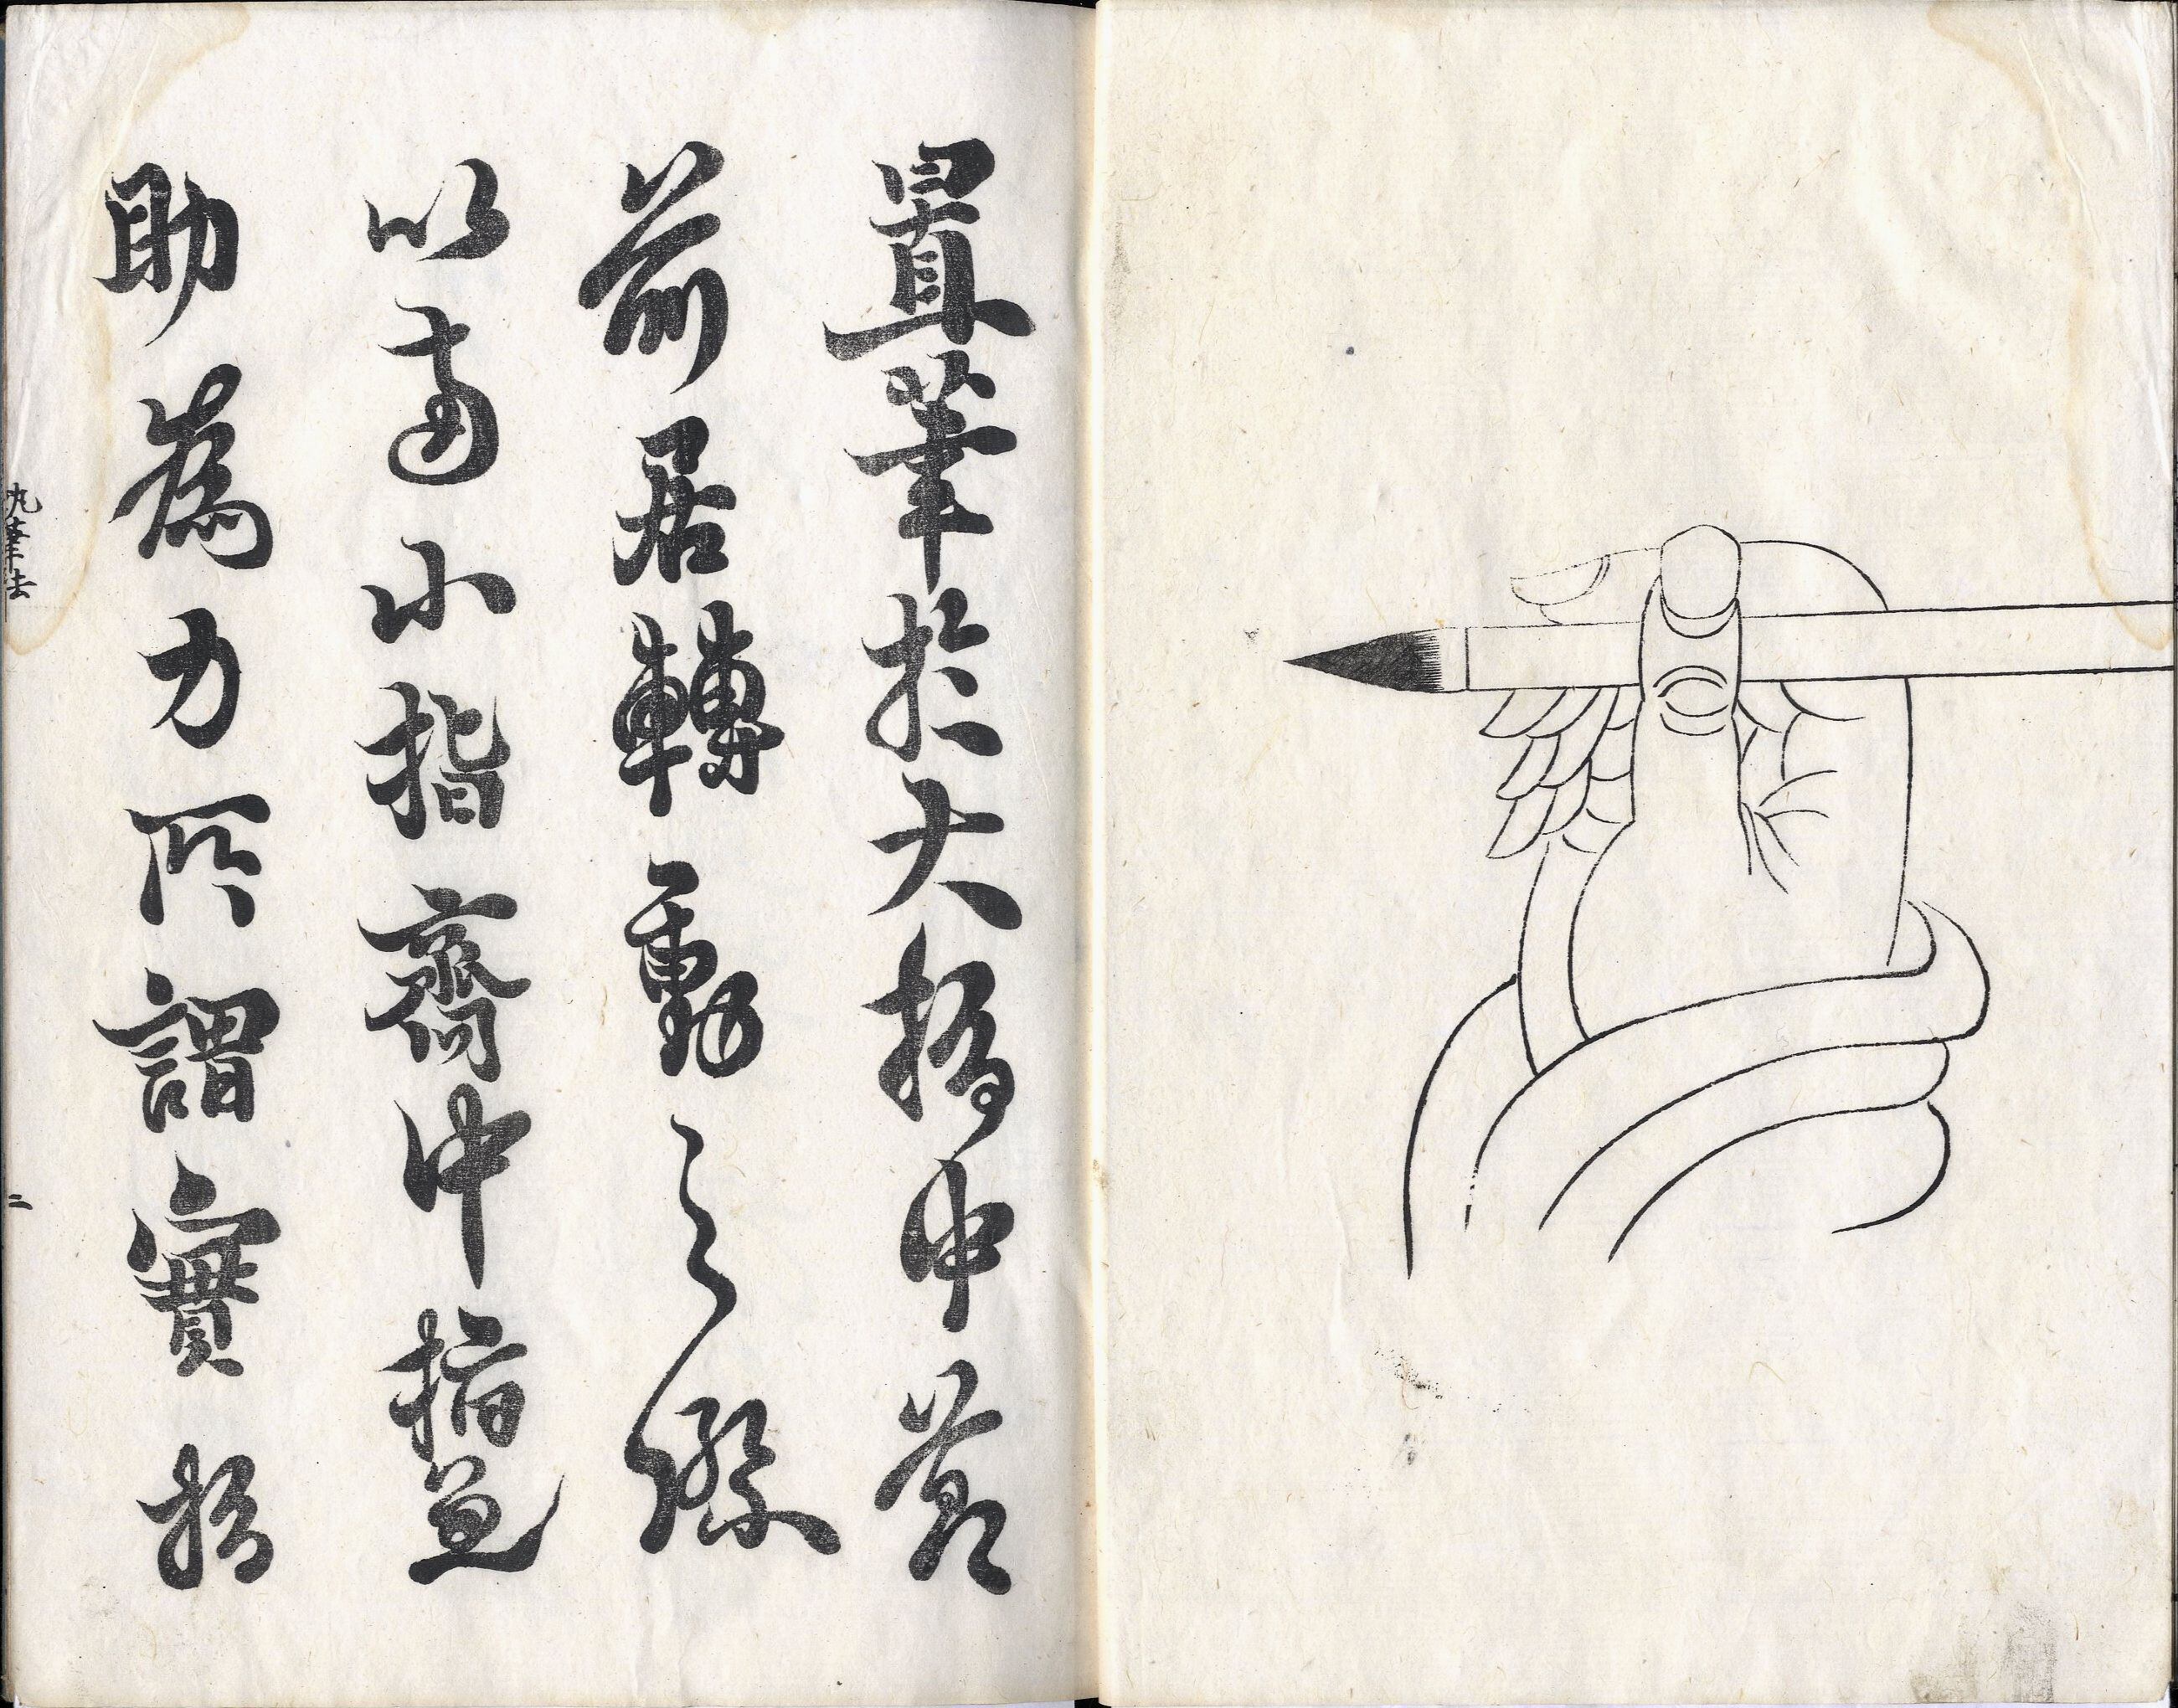 置筆於大指中節
前居轉動之際
以兩小指齊中指兼
助為力所謂實指
執筆法
二